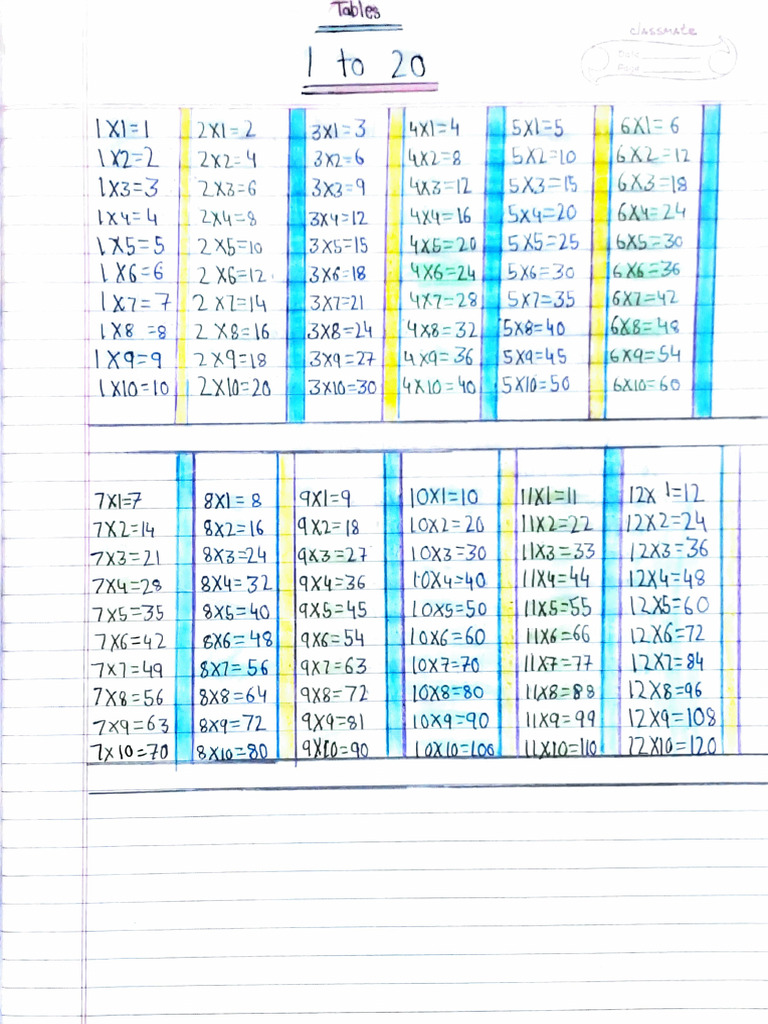 Tables
classmate
Date
Page
1 to 20
1X1=1 2X1=2 3X1=3 4X1=4 5X1=5 6X1=6
1X2=2 2X2=4 3X2=6 4X2=8 5X2=10 6X2=12
1X3=3 2X3=6 3X3=9 4X3=12 5X3=15 6X3=18
1X4=4 2X4=8 3X4=12 4X4=16 5X4=20 6X4=24
1X5=5 2X5=10 3X5=15 4X5=20 5X5=25 6X5=30
1X6=6 2X6=12 3X6=18 4X6=24 5X6=30 6X6=36
1X7=7 2X7=14 3X7=21 4X7=28 5X7=35 6X7=42
1X8=8 2X8=16 3X8=24 4X8=32 5X8=40 6X8=48
1X9=9 2X9=18 3X9=27 4X9=36 5X9=45 6X9=54
1X10=10 2X10=20 3X10=30 4X10=40 5X10=50 6X10=60
7X1=7 8X1=8 9X1=9 10X1=10 11X1=11 12X1=12
7X2=14 8X2=16 9X2=18 10X2=20 11X2=22 12X2=24
7X3=21 8X3=24 9X3=27 10X3=30 11X3=33 12X3=36
7X4=28 8X4=32 9X4=36 10X4=40 11X4=44 12X4=48
7X5=35 8X5=40 9X5=45 10X5=50 11X5=55 12X5=60
7X6=42 8X6=48 9X6=54 10X6=60 11X6=66 12X6=72
7X7=49 8X7=56 9X7=63 10X7=70 11X7=77 12X7=84
7X8=56 8X8=64 9X8=72 10X8=80 11X8=88 12X8=96
7X9=63 8X9=72 9X9=81 10X9=90 11X9=99 12X9=108
7X10=70 8X10=80 9X10=90 10X10=100 11X10=110 12X10=120